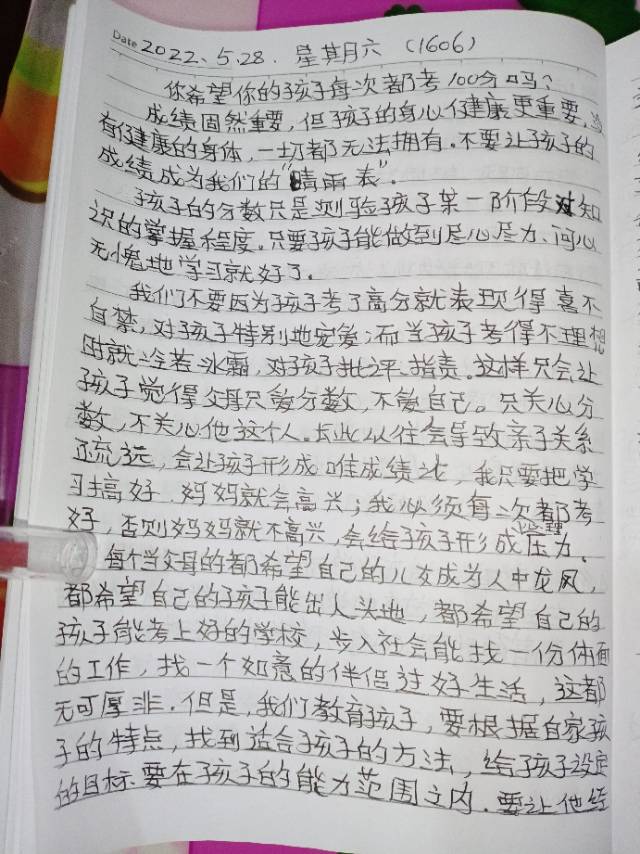 Date 2022、5.28. 星期六 (1606)
你希望你的孩子每次都考100分吗?
成绩固然重要,但孩子的身心健康更重要,
有健康的身体,一切都无法拥有.不要让孩子的
成绩成为我们的“晴雨表”.
孩子的分数只是测验孩子某一阶段对知
识的掌握程度.只要孩子能做到尽心尽力、问心
无愧地学习就好了.
我们不要因为孩子考了高分就表现得喜不
自禁,对孩子特别地宠爱;而当孩子考得不理想
时就冷若冰霜,对孩子批评、指责.这样只会让
孩子觉得父母只爱分数,不爱自己。只关心分
数,不关心他这个人.长此以往会导致亲子关系
疏远,会让孩子形成唯成绩论,我只要把学
习搞好,妈妈就会高兴;我必须每次都考
好,否则妈妈就不高兴,会给孩子形成心理压力.
每个当父母的都希望自己的儿女成为人中龙凤,
都希望自己的孩子能出人头地,都希望自己的
孩子能考上好的学校,步入社会能找一份体面
的工作,找一个如意的伴侣过好生活,这都
无可厚非.但是,我们教育孩子,要根据自家孩
子的特点,找到适合孩子的方法,给孩子设定
的目标要在孩子的能力范围之内.要让他经